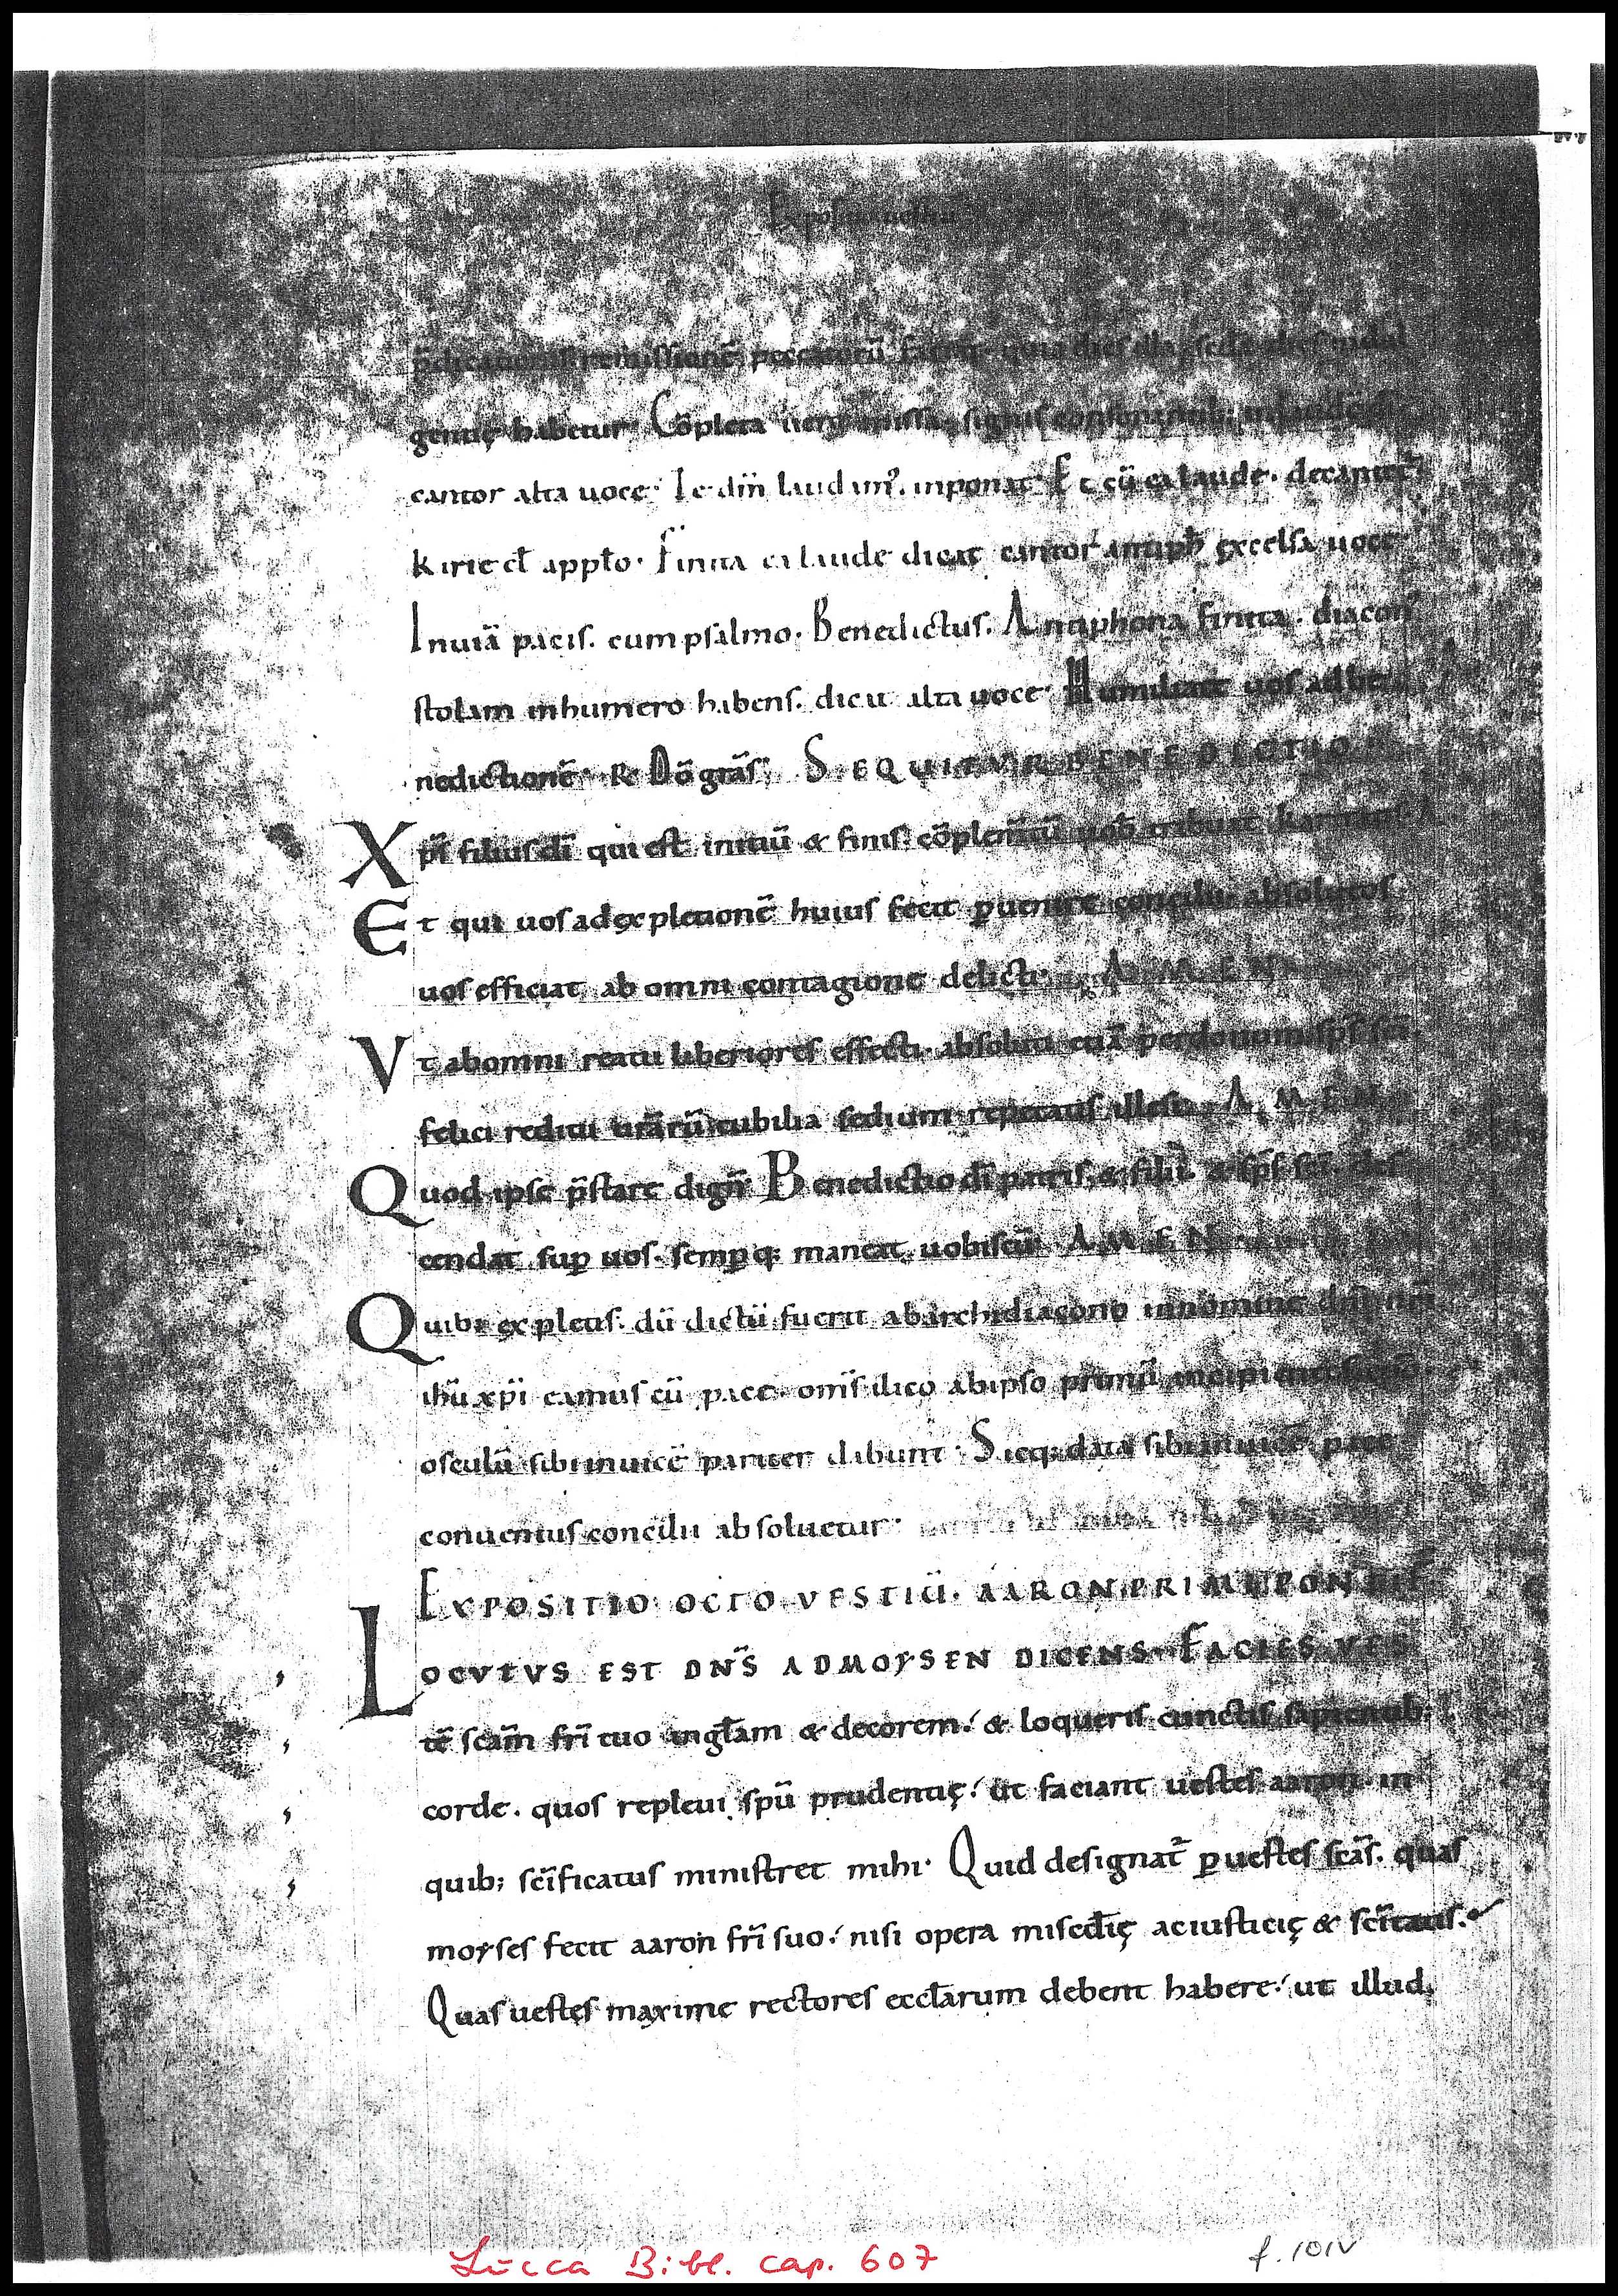 Expositio uestiū
p̄dicatores remissionē peccatorū
gentiȩ habetur. Cōpleta uero missa. signis
cantor alta uoce. Te dn̄ laudam᾽. inponat. Et cū ea laude. decantet᾽
kirie eł apƚo. Finita ea laude dicat cantor antiph̄ ȩxcelsa uoce.
Inuiā pacis. cum psalmo. Benedictus. Antiphona finita. diacon᾽
stolam inhumero habens. dicit alta uoce. Humiliate uos ad be
nedictionē. R̄ Dō grās. SEQUITVR BENEDICTIO
Xps̄ filius dī qui est initiū & finis. cōplem̄tū uob̄ tribuat karitatis. A
Et qui uos ad ȩxpletionē huius fecit ꝑuenire concilii. absolutos
uos efficiat, ab omni contagione delicti. AMEN
Vt abomni reatu liberiores effecti. absoluti etiā per donum sp̄s sc̄i
felici reditu ur̄arū cubilia sedium repetatis illesi. AMEN
Quod ipse p̄stare dign̄. Benedictio dī patris. & filii. & sp̄s sc̄i. des
cendat suꝑ uos. semꝑq; maneat uobiscū. AMEN
Quibꝰ ȩxpletis. dū dictū fuerit abarchidiacono innomine dn̄i nr̄i
ihū xp̄i eamus cū pace. om̄s ilico abipso primū incipientes
osculū sibi inuicē pariter dabunt. Sicq; data sibi inuicē pace
conuentus concilii absoluetur.
EXPOSITIO OCTO VESTIŪ. AARON PRIMI PONTIF̄
LOCVTVS EST DN̄S ADMOYSEN DICENS. FACIES VES
tē scām fr̄i tuo inglam & decorem. & loqueris cunctis sapientib;
corde. quos repleui spū prudentiȩ. ut faciant uestes aaron. in
quib; scīficatus ministret mihi. Quid designat̄ ꝑuestes scās. quas
moyses fecit aaron fr̄i suo. nisi opera miscdiȩ aciusticiȩ & scītatis.
Quas uestes maxime rectores eccƚarum debent habere. ut illud.
Lucca Bibl. cap. 607
f. 101v